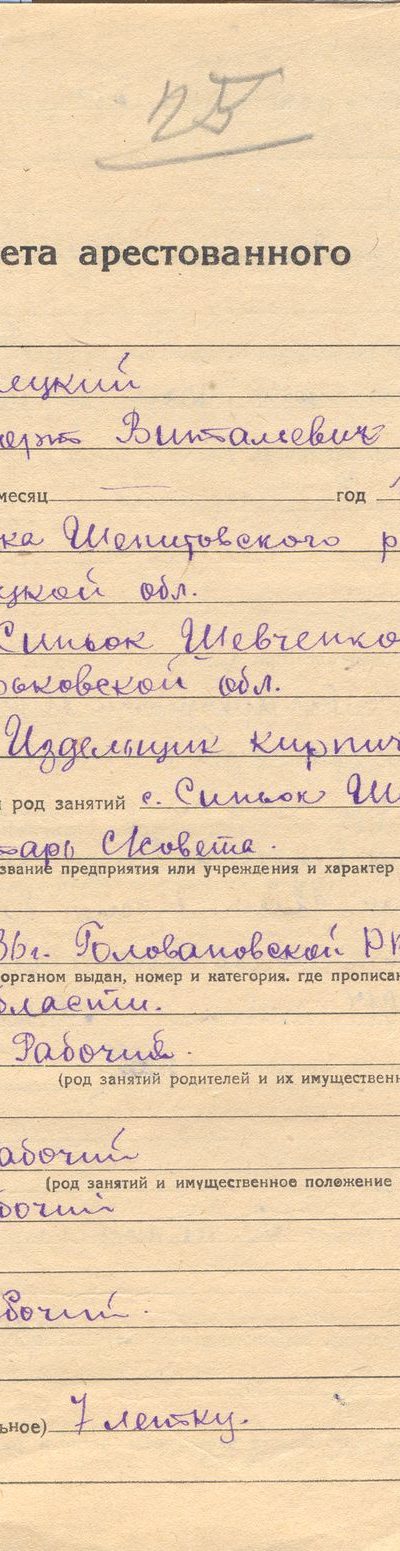 25
ета арестованного
ецкий
Виталевич
месяц год
ка Шепитовского р
цкой обл.
Синьок Шевченко
рьковской обл.
Издельщик кирпич
и род занятий с. Синьок Ш
тарь С/совета.
звание предприятия или учреждения и характер
36г. Головановской РК
органом выдан, номер и категория. где прописан
бласти.
Рабочий.
(род занятий родителей и их имущественн
абочий
(род занятий и имущественное положение
бочий
бочий.
ьное) 7 летку.